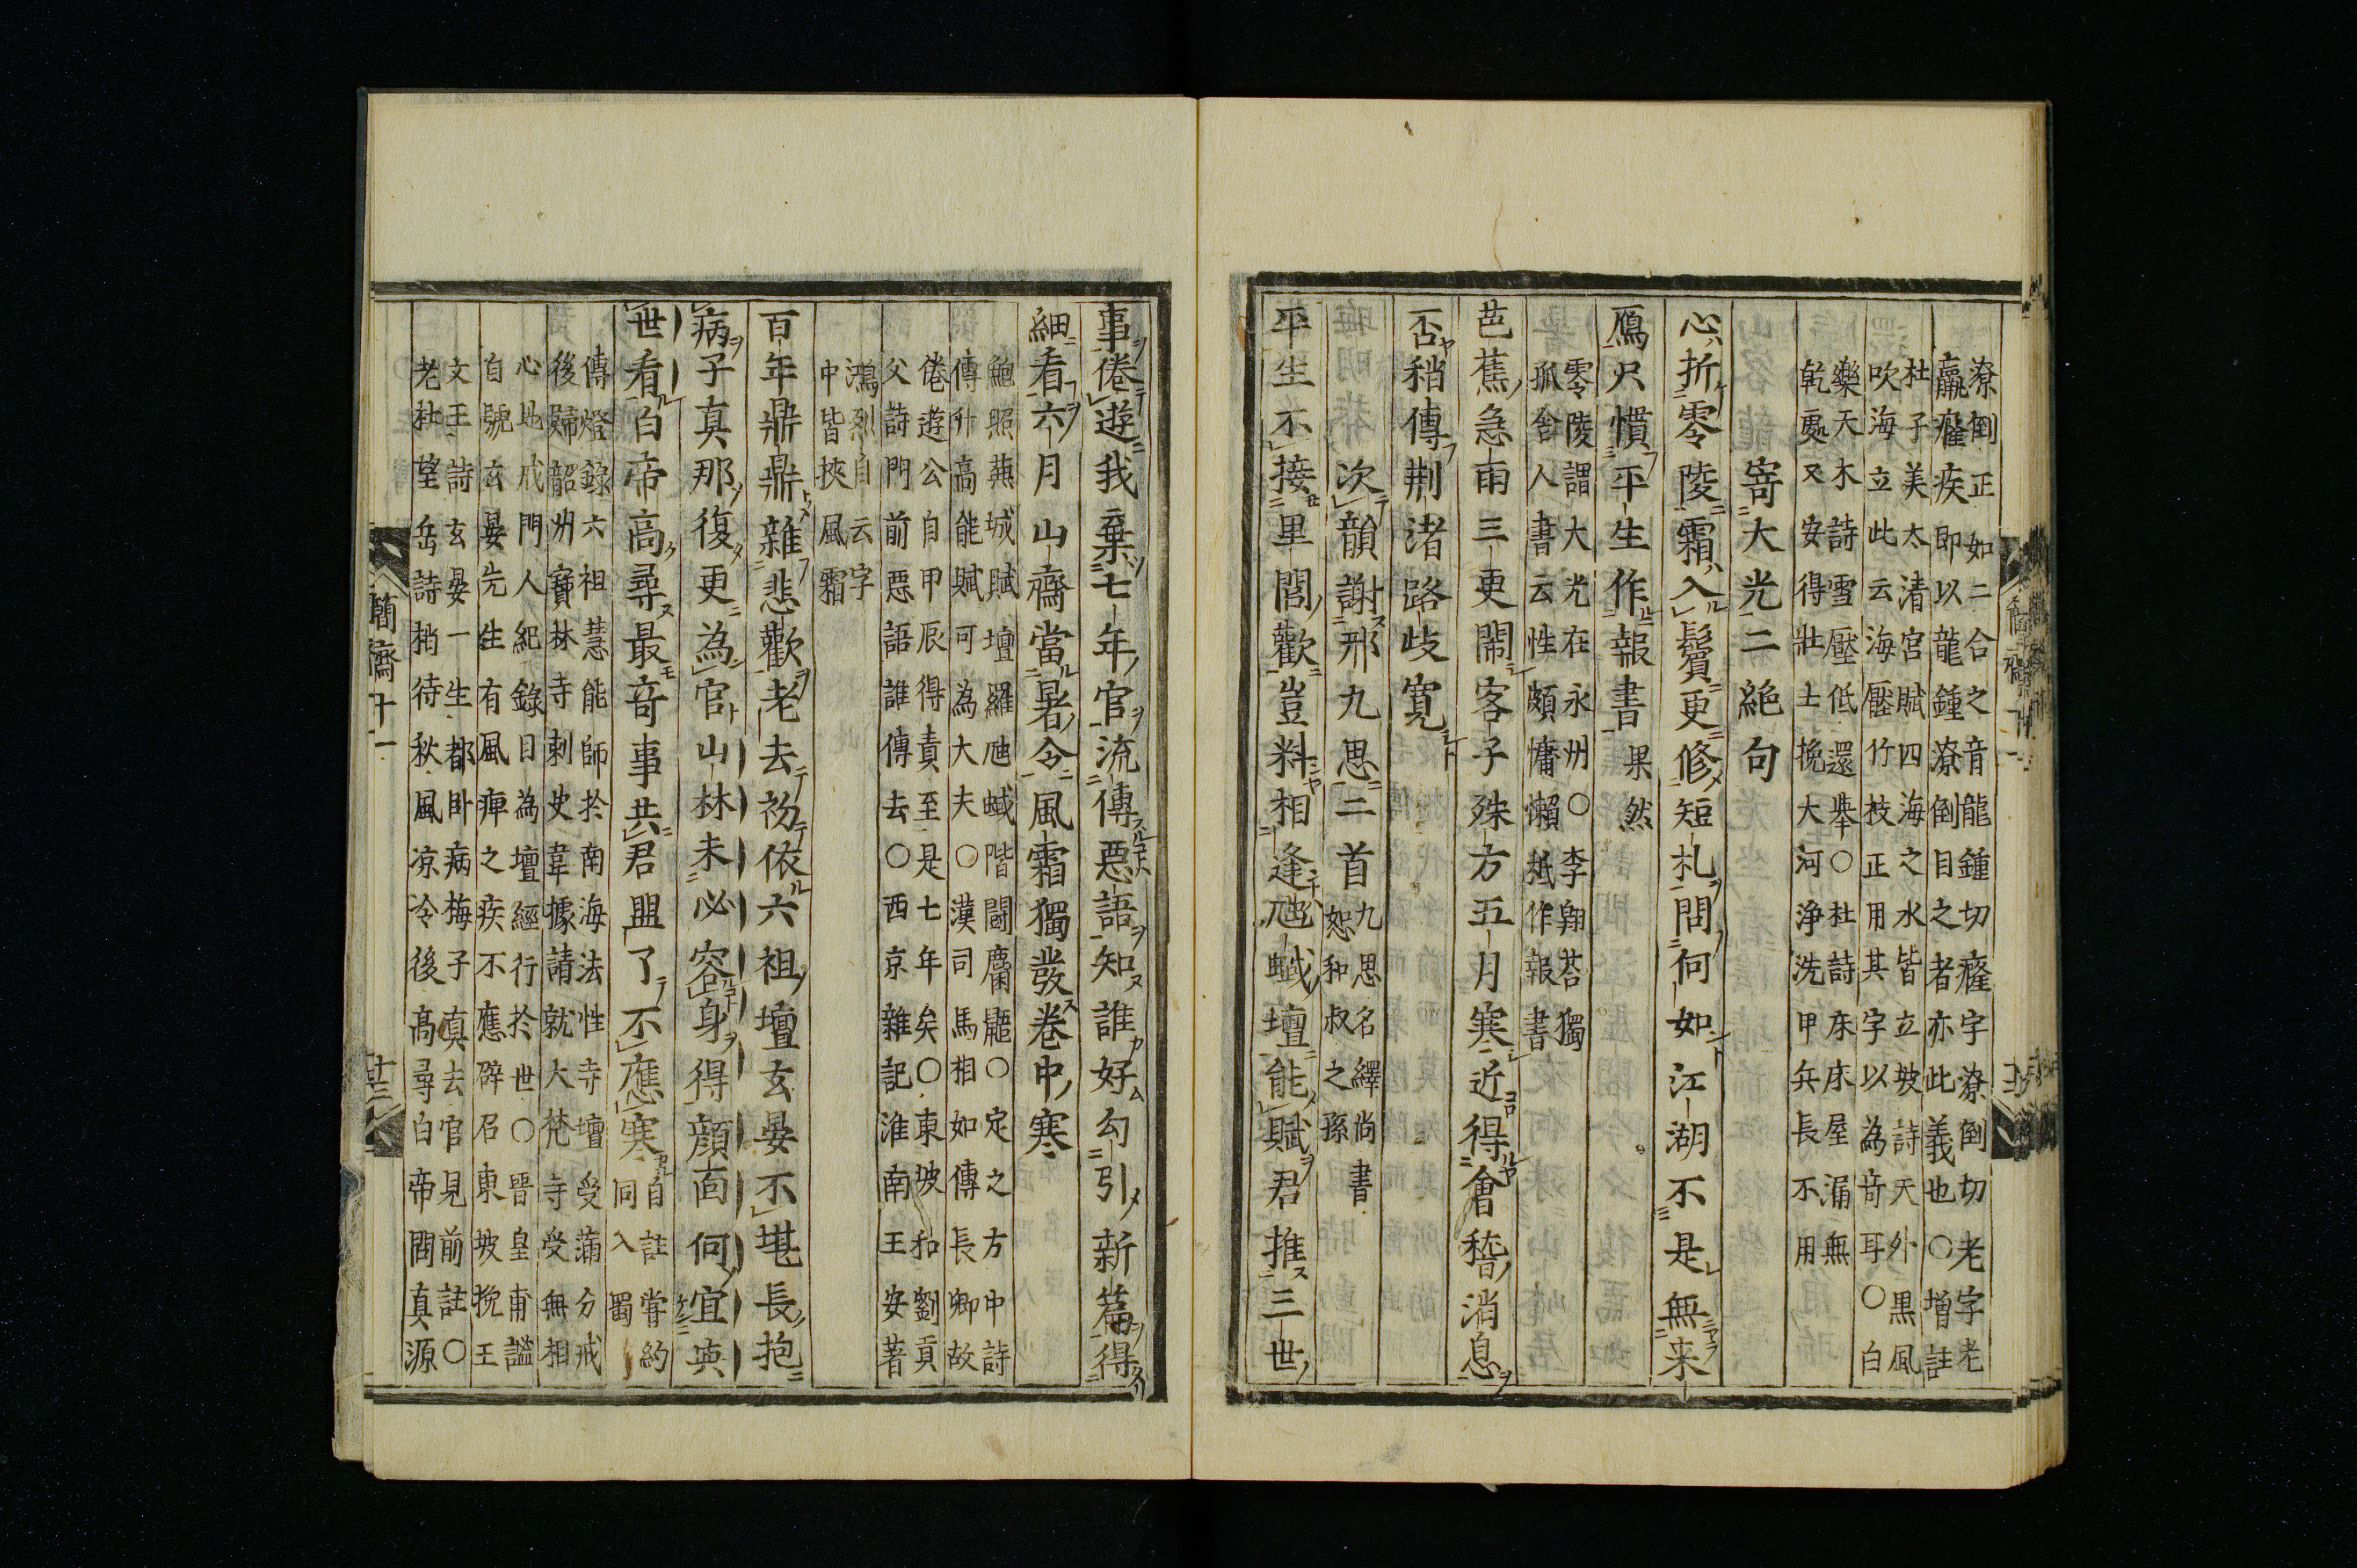 潦倒正如二合之音龍鍾切癃字潦倒切老字老
羸癃疾即以龍鍾潦倒目之者亦此義也○增註
杜子美太清宮賦四海之水皆立坡詩天外黒風
吹海立此云海壓竹枝正用其字以為竒耳○白
樂天木詩雪壓低還舉○杜詩床床屋漏無
乾處又安得壯士挽大河淨洗甲兵長不用
寄大光二絶句
心折零陵霜入鬢更修短札問何如江湖不是無来
鴈只慣平生作報書 果然
零陵謂大光在永州○李翱荅獨
孤舍人書云性頗慵懶抵作報書
芭蕉急雨三更鬧客子殊方五月寒近得會稽消息
否稍傳荆渚路歧寛
次韻謝邢九思二首
九思名繹尚書
恕和叔之孫
平生不接里閭歡豈料相逢虺蜮壇能賦君推三世
事倦遊我棄七年官流傳惡語知誰好勾引新篇得
細看六月山齋當暑令風霜獨發卷中寒
鮑照蕪城賦壇羅虺蜮階鬬麏鼯○定之方中詩
傳升高能賦可為大夫○漢司馬相如傳長卿故
倦遊公自甲辰得責至是七年矣○東坡和劉貢
父詩門前惡語誰傳去○西京雜記淮南王安著
鴻烈自云字
中皆挾風霜
百年鼎鼎雜悲歡老去初依六祖壇玄晏不堪長抱
病子真那復更為官山林未必容身得顔面何宜與
世看白帝高尋最竒事共君盟了不應寒
自註嘗約
同入蜀
傳燈錄六祖慧能師於南海法性寺壇受蒲分戒
後歸韶州寶林寺刺史韋據請就大梵寺受無相
心地戒門人紀錄目為壇經行於世○晉皇甫謐
自號玄晏先生有風痺之疾不應辟召東坡挽王
文王詩玄晏一生都卧病梅子真去官見前註○
老杜望岳詩稍待秋風凉冷後髙尋白帝問真源
簡齋十一
十三